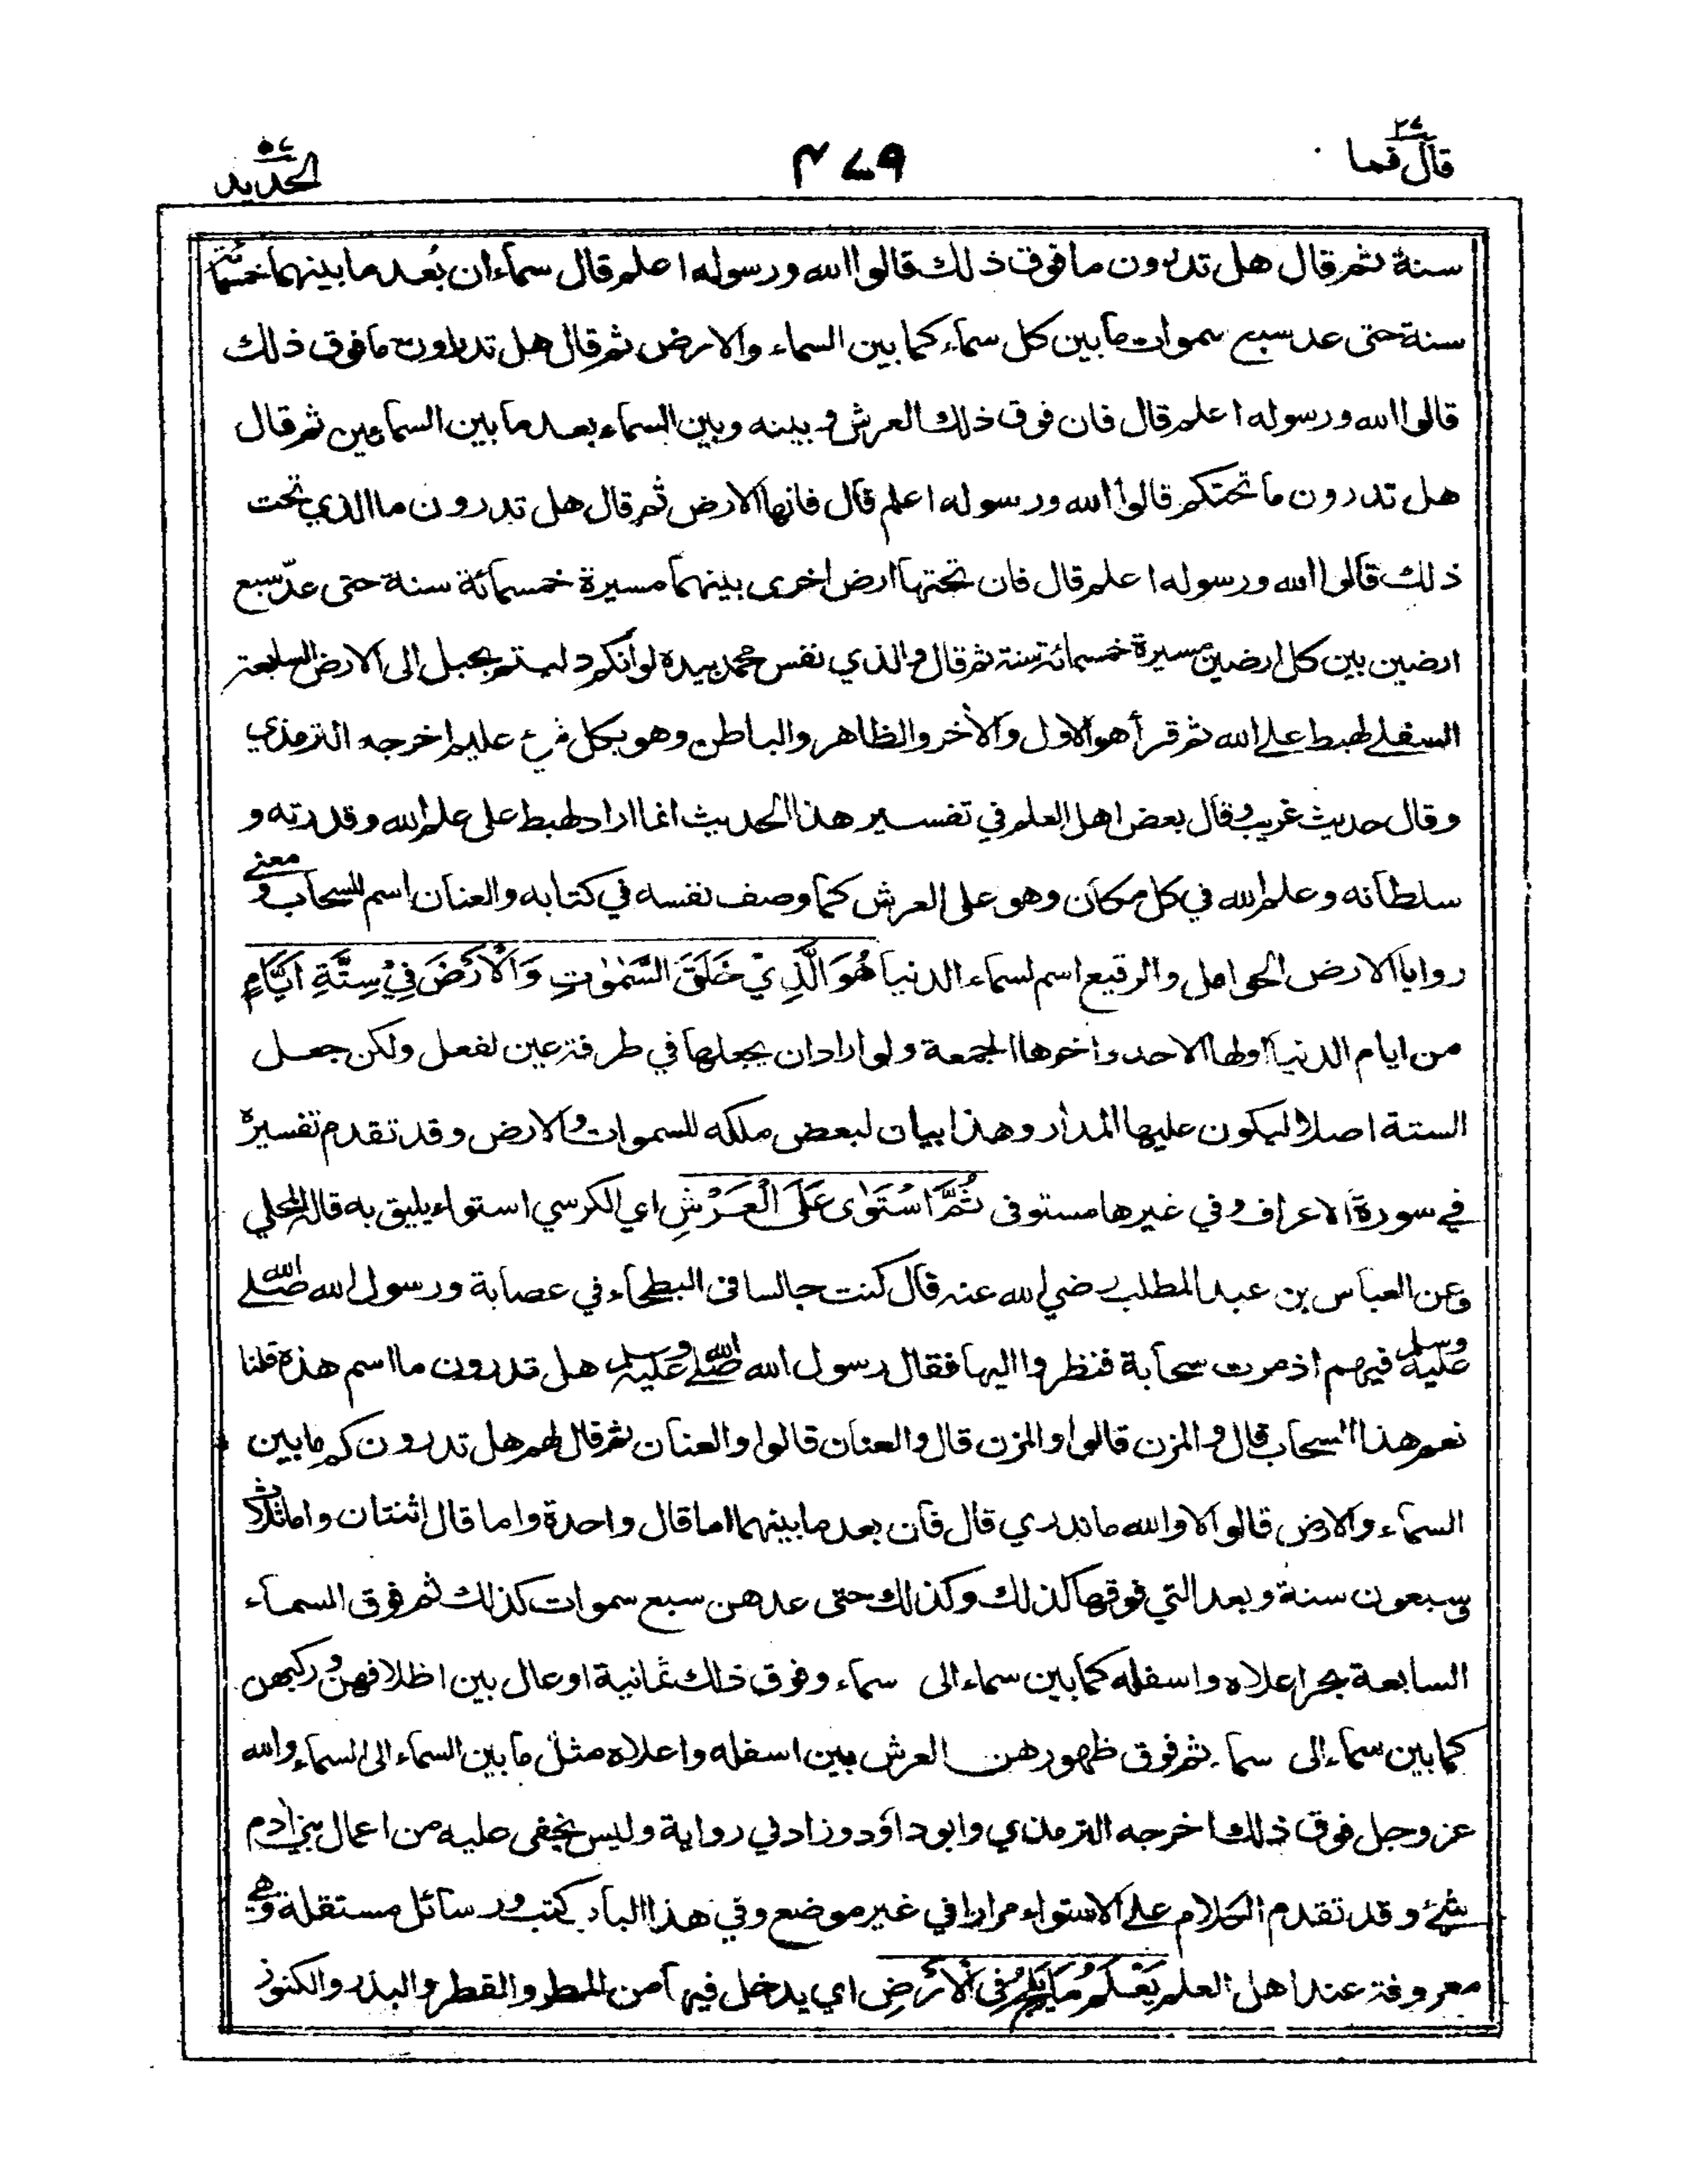 قال فما ٢٧
٤٧٩
الحديد ٥٧
سنة ثم قال هل تدرون ما فوق ذلك قالوا الله ورسوله اعلم قال سماءان بُعد ما بينهما خمسمائة
سنة حتى عد سبع سموات ما بين كل سماء كما بين السماء والارض ثم قال هل تدرون ما فوق ذلك
قالوا الله ورسوله اعلم قال فان فوق ذلك العرش وبينه وبين السماء بعد ما بين السماءين ثم قال
هل تدرون ما تحتكم قالوا الله ورسوله اعلم قال فانها الارض ثم قال هل تدرون ما الذي تحت
ذلك قالوا الله ورسوله اعلم قال فان تحتها ارض اخرى بينهما مسيرة خمسمائة سنة حتى عدّ سبع
ارضين بين كل ارضين مسيرة خمسمائة سنة ثم قال والذي نفس محمد بيده لو انكم دليتم بحبل الى الارض السابعة
السفلے لهبط علے الله ثم قرأ هو الاول والآخر والظاهر والباطن وهو بكل شيء عليم اخرجه الترمذي
وقال حديث غريب وقال بعض اهل العلم في تفسير هذا الحديث انما اراد لهبط على علم الله وقدرته و
سلطانه وعلم الله في كل مكان وهو على العرش كما وصف نفسه في كتابه والعنان اسم للسحاب و معنے
روايا الارض الحوامل والرقيع اسم لسماء الدنيا هُوَ الَّذِيْ خَلَقَ السَّمٰوٰتِ وَالْاَرْضَ فِيْ سِتَّةِ اَيَّامٍ
من ايام الدنيا اولها الاحد واخرها الجمعة ولو اراد ان يجعلها في طرفة عين لفعل ولكن جعل
الستة اصلا ليكون عليها المدار وهذا بيان لبعض ملكه للسموات والارض وقد تقدم تفسيره
في سورة الاعراف وفي غيرها مستوفى ثُمَّ اسْتَوٰى عَلَى الْعَرْشِ اي الكرسي استواء يليق به قاله المحلي
وعن العباس بن عبد المطلب رضي الله عنه قال كنت جالسا في البطحاء في عصابة ورسول الله صلے الله
عليه وسلم فيهم اذ مرت سحابة فنظروا اليها فقال رسول الله صلے الله عليه وسلم هل تدرون ما اسم هذه قلنا
نعم هذا السحاب قال والمزن قالوا والمزن قال والعنان قالوا والعنان ثم قال لهم هل تدرون كم ما بين
السماء والارض قالوا لا والله ما ندري قال فان بعد ما بينهما اما قال واحدة واما قال اثنتان واما ثلاث
وسبعون سنة وبعد التي فوقها كذلك وكذلك حتى عدهن سبع سموات كذلك ثم فوق السماء
السابعة بحر اعلاه واسفله كما بين سماء الى سماء وفوق ذلك ثمانية اوعال بين اظلافهن وركبهن
كما بين سماء الى سماء ثم فوق ظهورهن العرش بين اسفله واعلاه مثل ما بين السماء الى السماء والله
عز وجل فوق ذلك اخرجه الترمذي وابو داؤد وزاد في رواية وليس يخفى عليه من اعمال بني آدم
شيء وقد تقدم الكلام علے الاستواء مرارا في غير موضع وفي هذا الباب كتب ورسائل مستقلة وهي
معروفة عند اهل العلم يَعْلَمُ مَا يَلِجُ فِى الْاَرْضِ اي يدخل فيها من المطر والقطر والبذر والكنوز